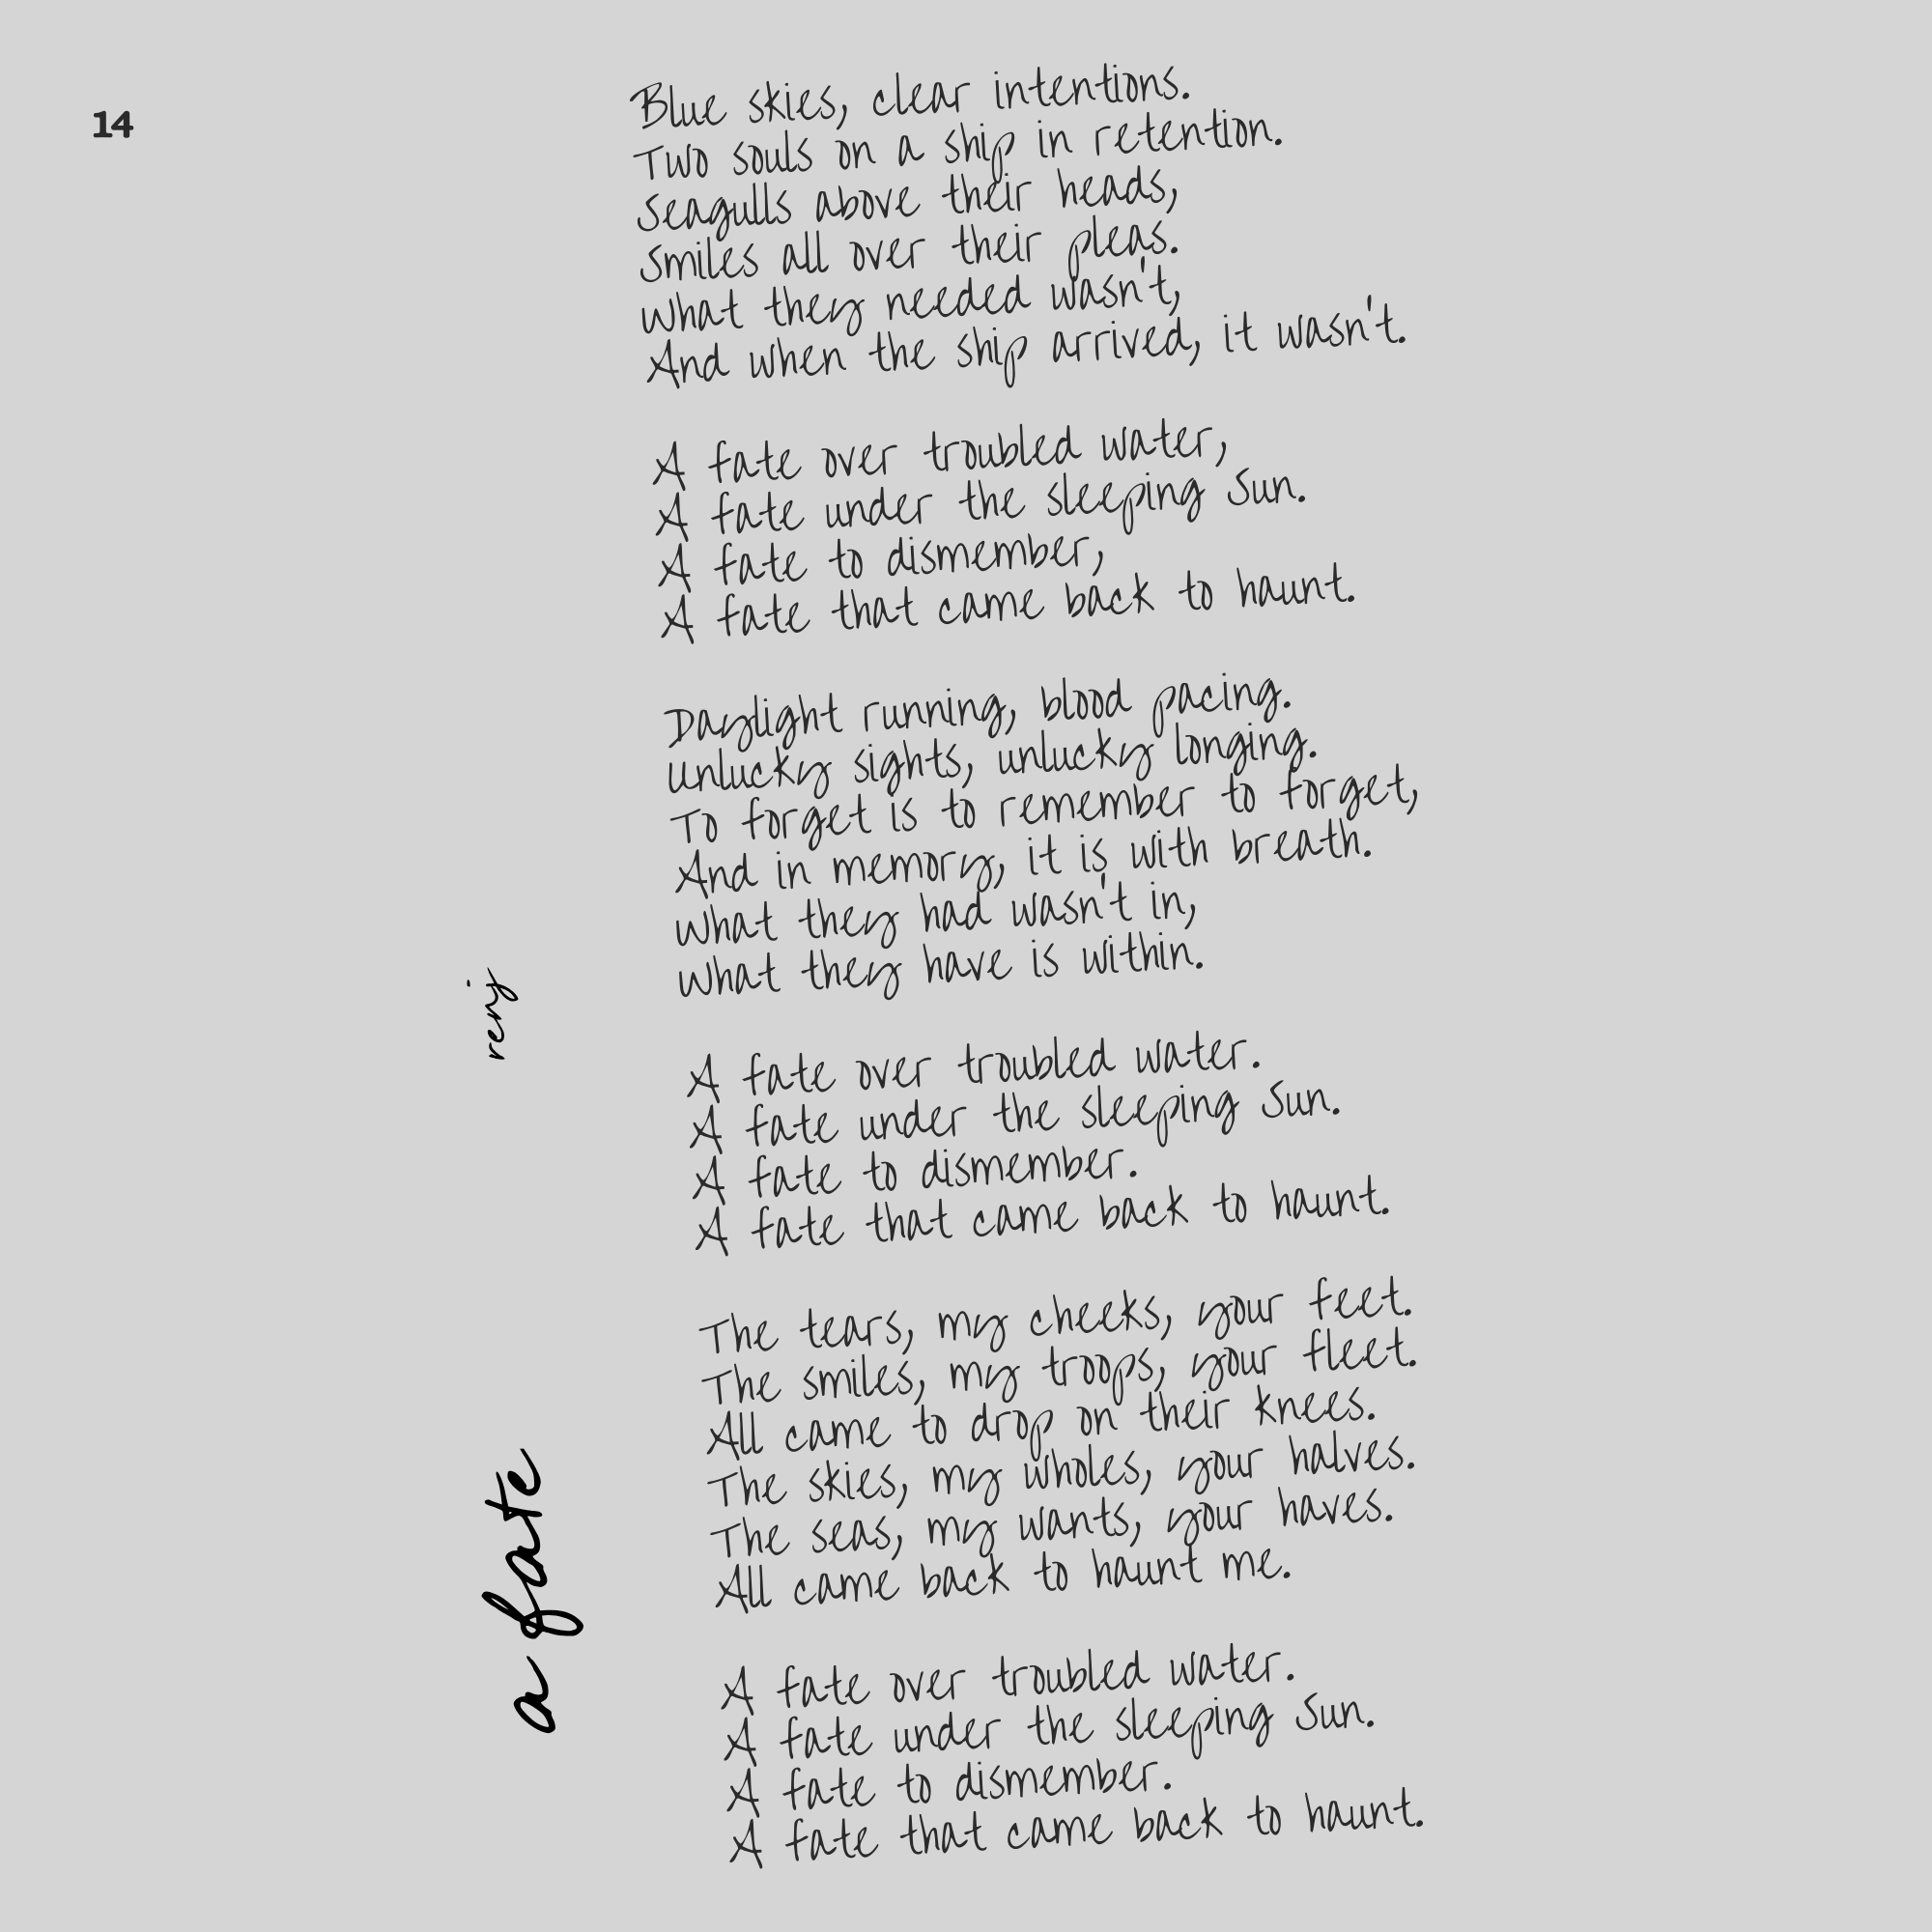 14
Blue skies, clear intentions.
Two souls on a ship in retention.
Seagulls above their heads,
Smiles all over their pleas.
What they needed wasn't,
And when the ship arrived, it wasn't.
A fate over troubled water,
A fate under the sleeping Sun.
A fate to dismember,
A fate that came back to haunt.
Daylight running, blood pacing.
Unlucky sights, unlucky longing.
To forget is to remember to forget,
And in memory, it is with breath.
What they had wasn't in,
What they have is within.
A fate over troubled water.
A fate under the sleeping Sun.
A fate to dismember.
A fate that came back to haunt.
The tears, my cheeks, your feet.
The smiles, my troops, your fleet.
All came to drop on their knees.
The skies, my wholes, your halves.
The seas, my wants, your haves.
All came back to haunt me.
A fate over troubled water.
A fate under the sleeping Sun.
A fate to dismember.
A fate that came back to haunt.
a fate